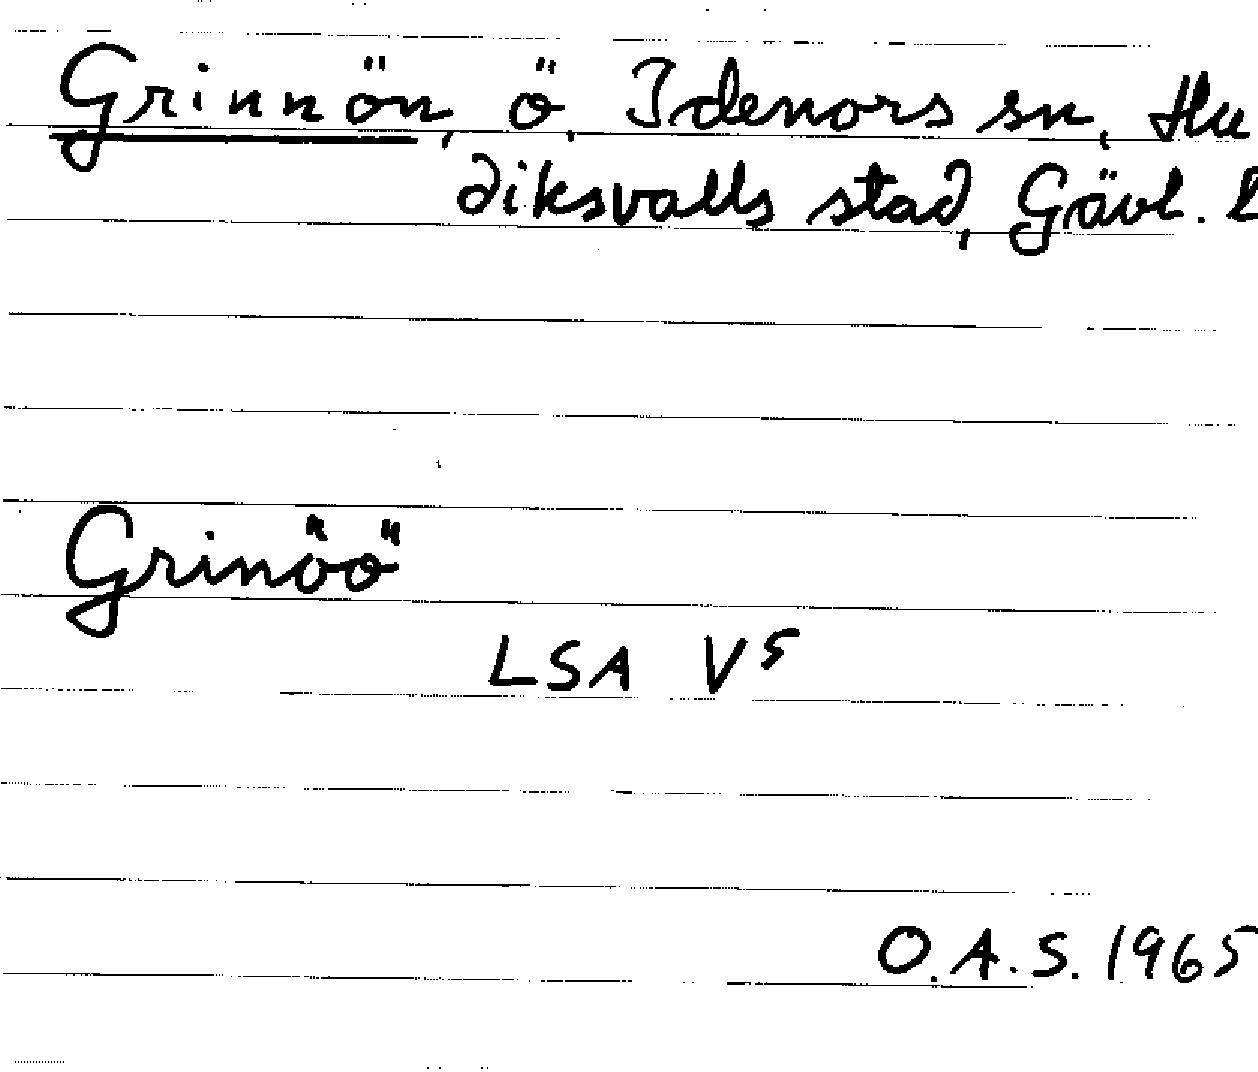 Grinnön, ö, Idenors sn, Hu
diksvalls stad, Gävl. l
Grinöö
LSA V5
O.A.S. 1965